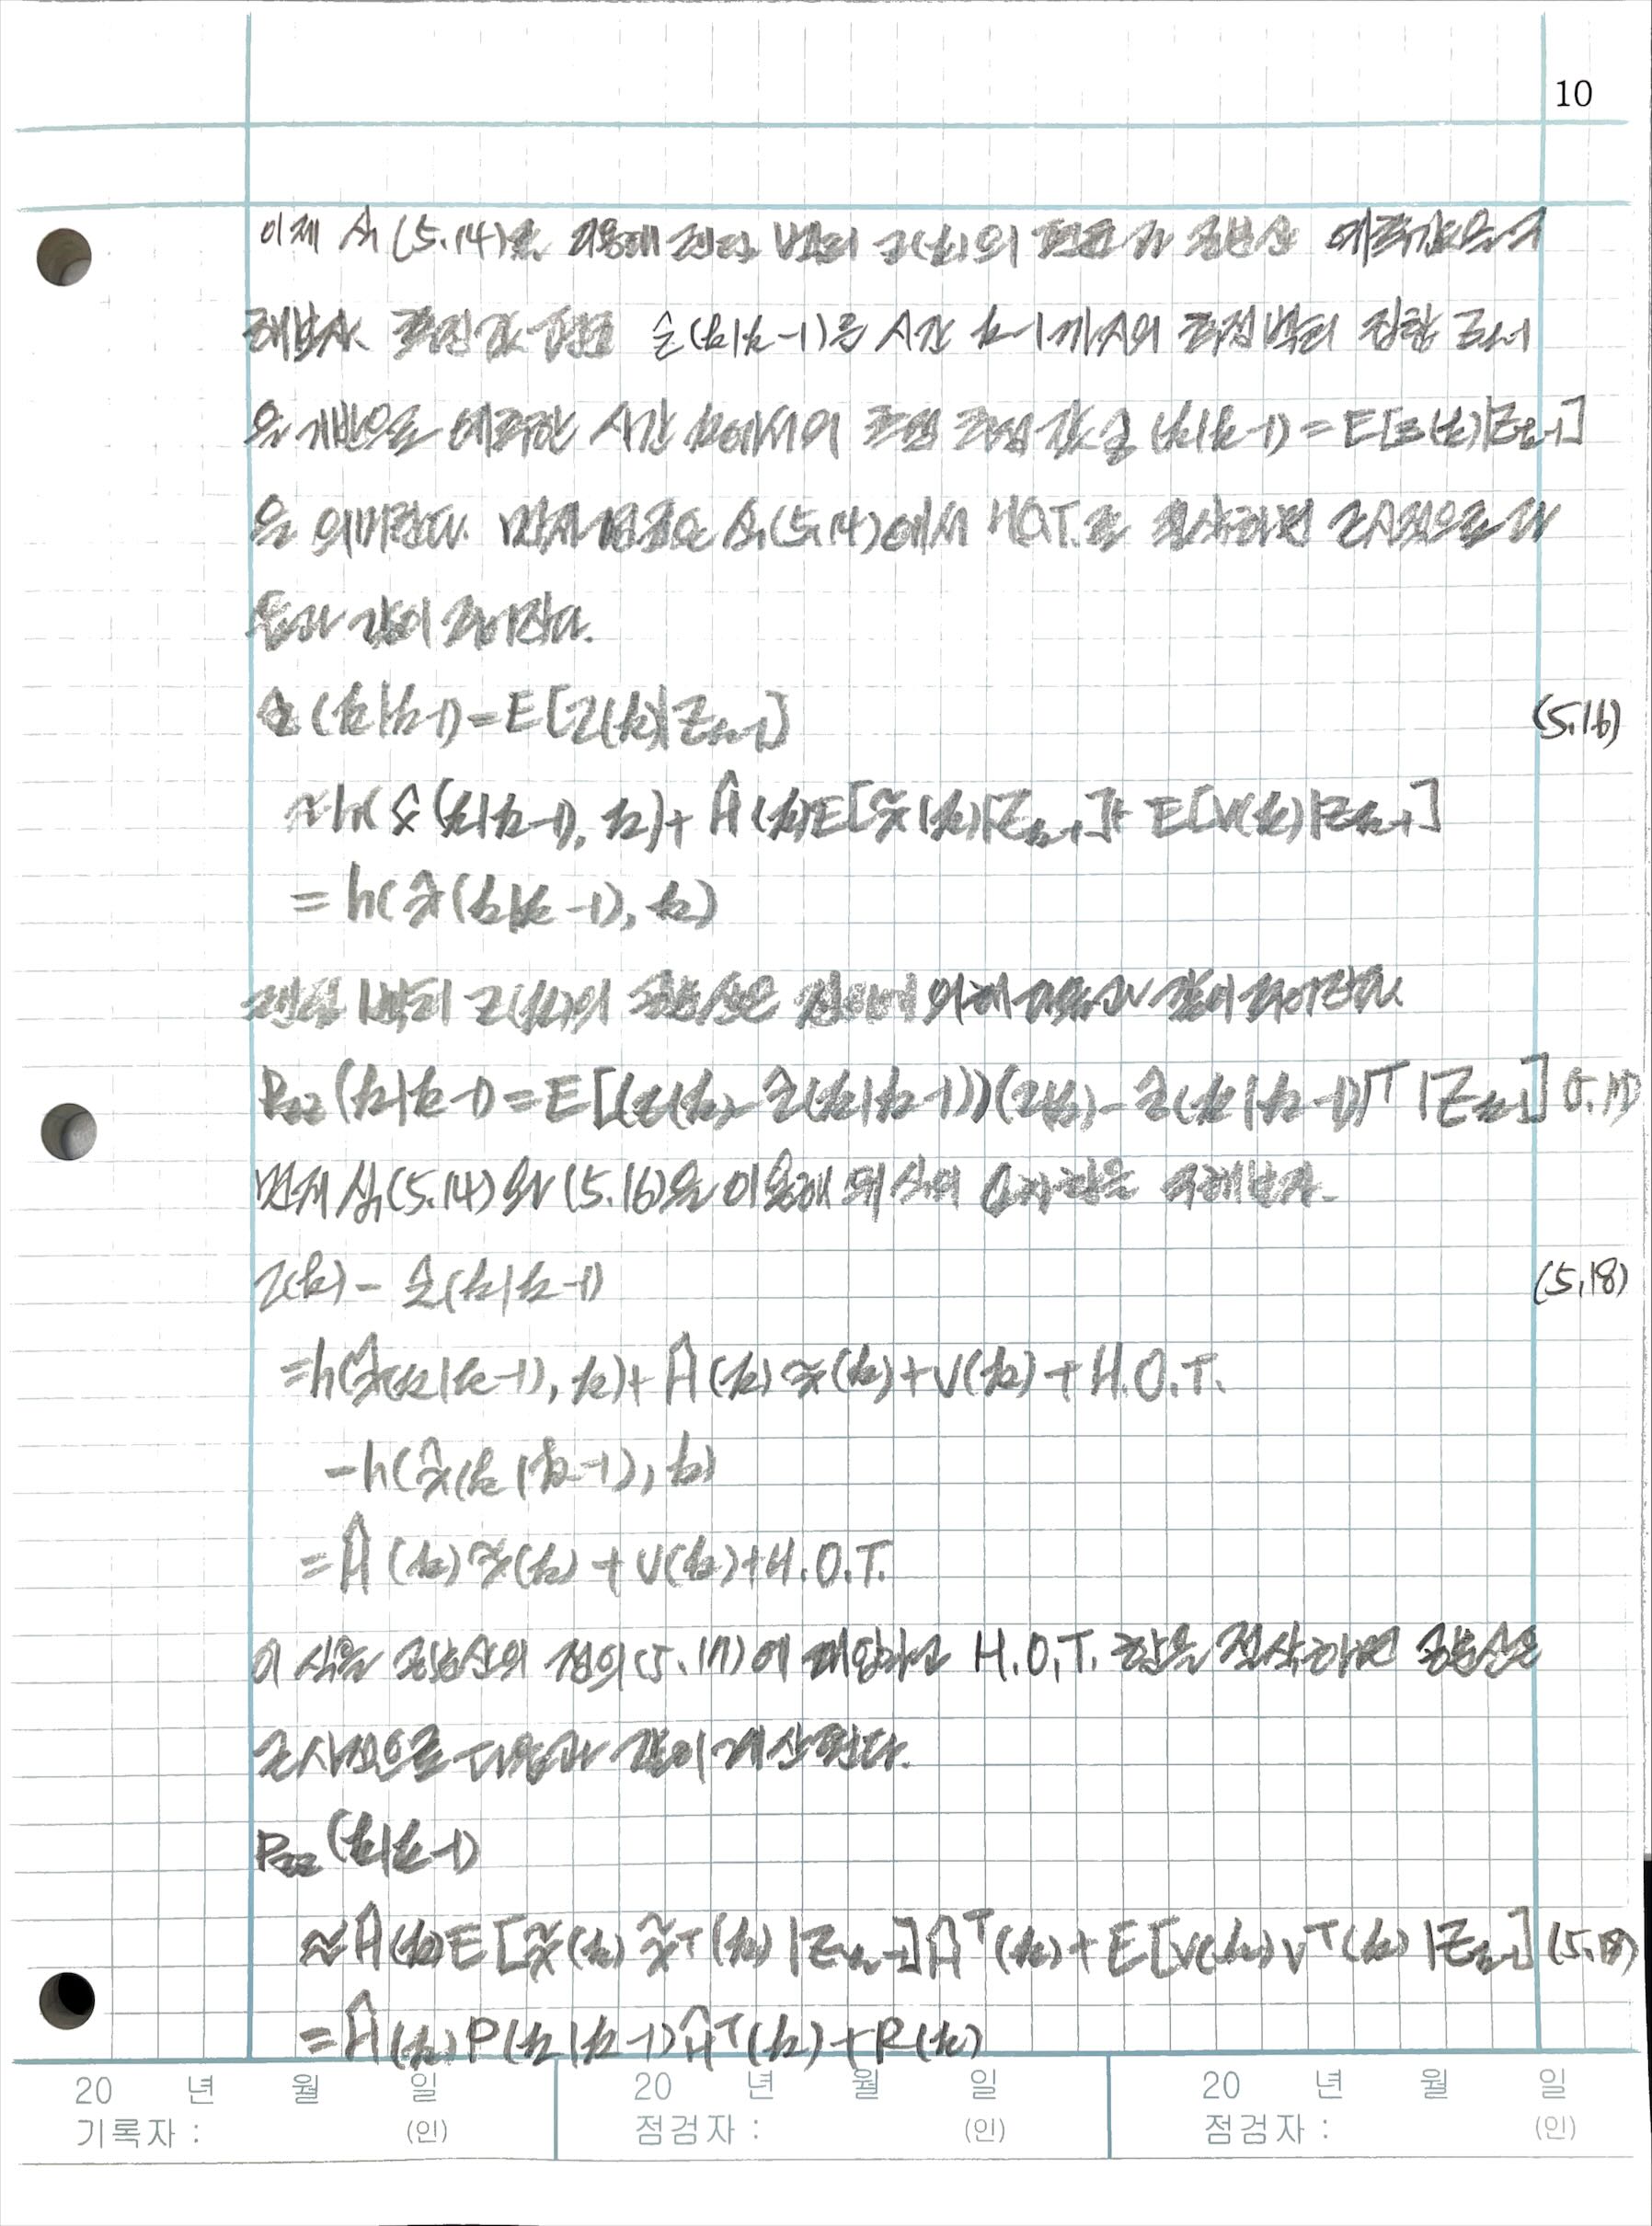 10
이제 식 (5.14)를 이용해 랜덤 벡터 z(k)의 평균과 공분산 예측값을 구
해보자. 측정값 평균 ẑ(k|k-1)은 시간 k-1까지의 측정 벡터 집합 Z_{k-1}
을 기반으로 예측한 시간 k에서의 측정 값 ẑ(k|k-1) = E[z(k)|Z_{k-1}]
을 의미한다. 먼저 평균은 식(5.14)에서 H.O.T.를 절삭하면 근사적으로 다
음과 같이 주어진다.
ẑ(k|k-1) = E[z(k)|Z_{k-1}] (5.16)
≈ h(x̂(k|k-1), k) + Ĥ(k)E[x̃(k)|Z_{k-1}] + E[v(k)|Z_{k-1}]
= h(x̂(k|k-1), k)
랜덤 벡터 z(k)의 공분산은 정의에 의해 다음과 같이 주어진다.
P_{zz}(k|k-1) = E[(z(k) - ẑ(k|k-1))(z(k) - ẑ(k|k-1))^T | Z_{k-1}] (5.17)
먼저 식(5.14)와 (5.16)을 이용해 위 식의 오차항을 구해보자.
z(k) - ẑ(k|k-1) (5.18)
= h(x̂(k|k-1), k) + Ĥ(k) x̃(k) + v(k) + H.O.T.
- h(x̂(k|k-1), k)
= Ĥ(k) x̃(k) + v(k) + H.O.T.
이 식을 공분산의 정의(5.17)에 대입하고 H.O.T. 항을 절삭하면 공분산은
근사적으로 다음과 같이 계산된다.
P_{zz}(k|k-1)
≈ Ĥ(k)E[x̃(k) x̃^T(k) |Z_{k-1}]Ĥ^T(k) + E[v(k) v^T(k) |Z_{k-1}] (5.18)
= Ĥ(k)P(k|k-1)Ĥ^T(k) + R(k)
20 년 월 일 20 년 월 일 20 년 월 일
기록자 : (인) 점검자 : (인) 점검자 : (인)